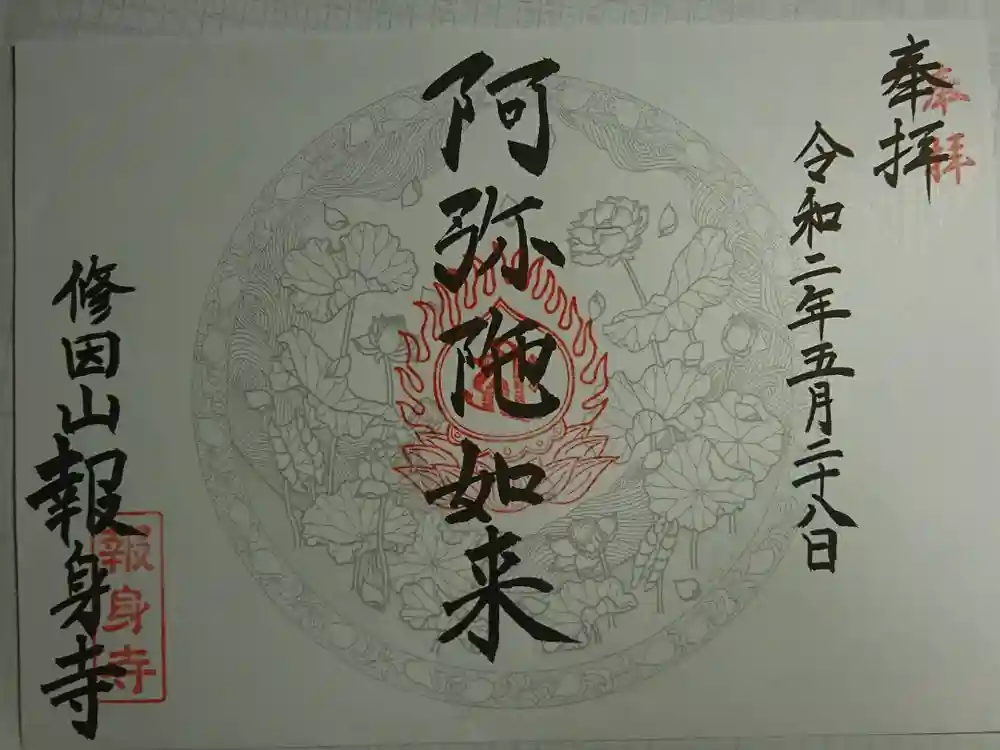 奉拝
奉拝
令和二年五月二十八日
阿弥陀如来
修因山報身寺
報身寺